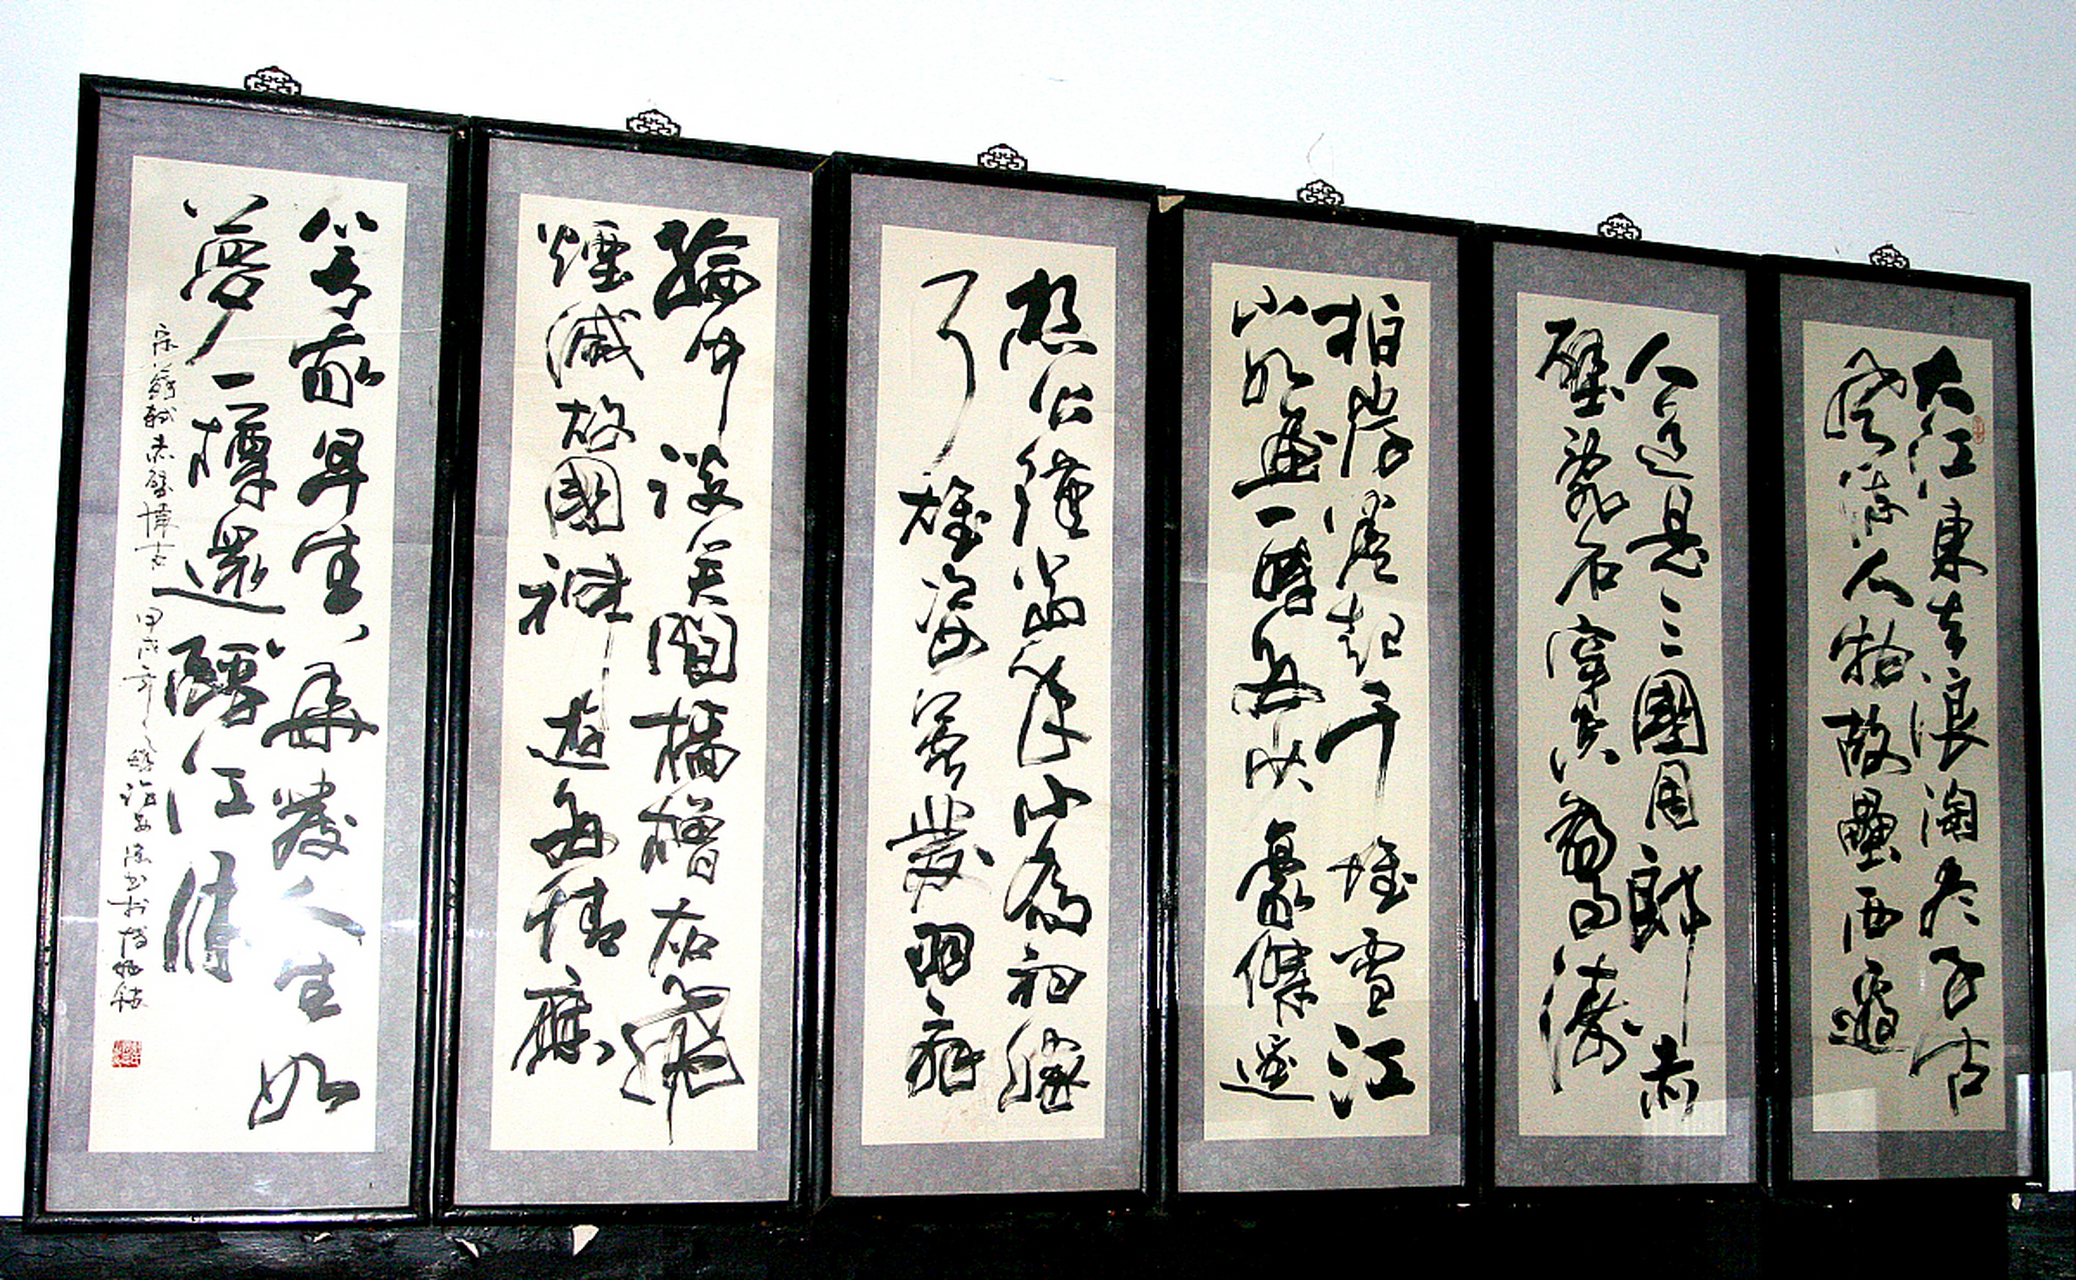 大江東去浪淘盡千古
風流人物故壘西邊
人道是三國周郎赤
壁亂石穿空驚濤
拍岸捲起千堆雪江
山如畫一時多少豪傑遙
想公瑾當年小喬初嫁
了雄姿英發羽扇
綸巾談笑間檣櫓灰飛
煙滅故國神遊多情應
笑我早生華髮人生如
夢一樽還酹江月
宋蘇軾赤壁懷古 甲戌年